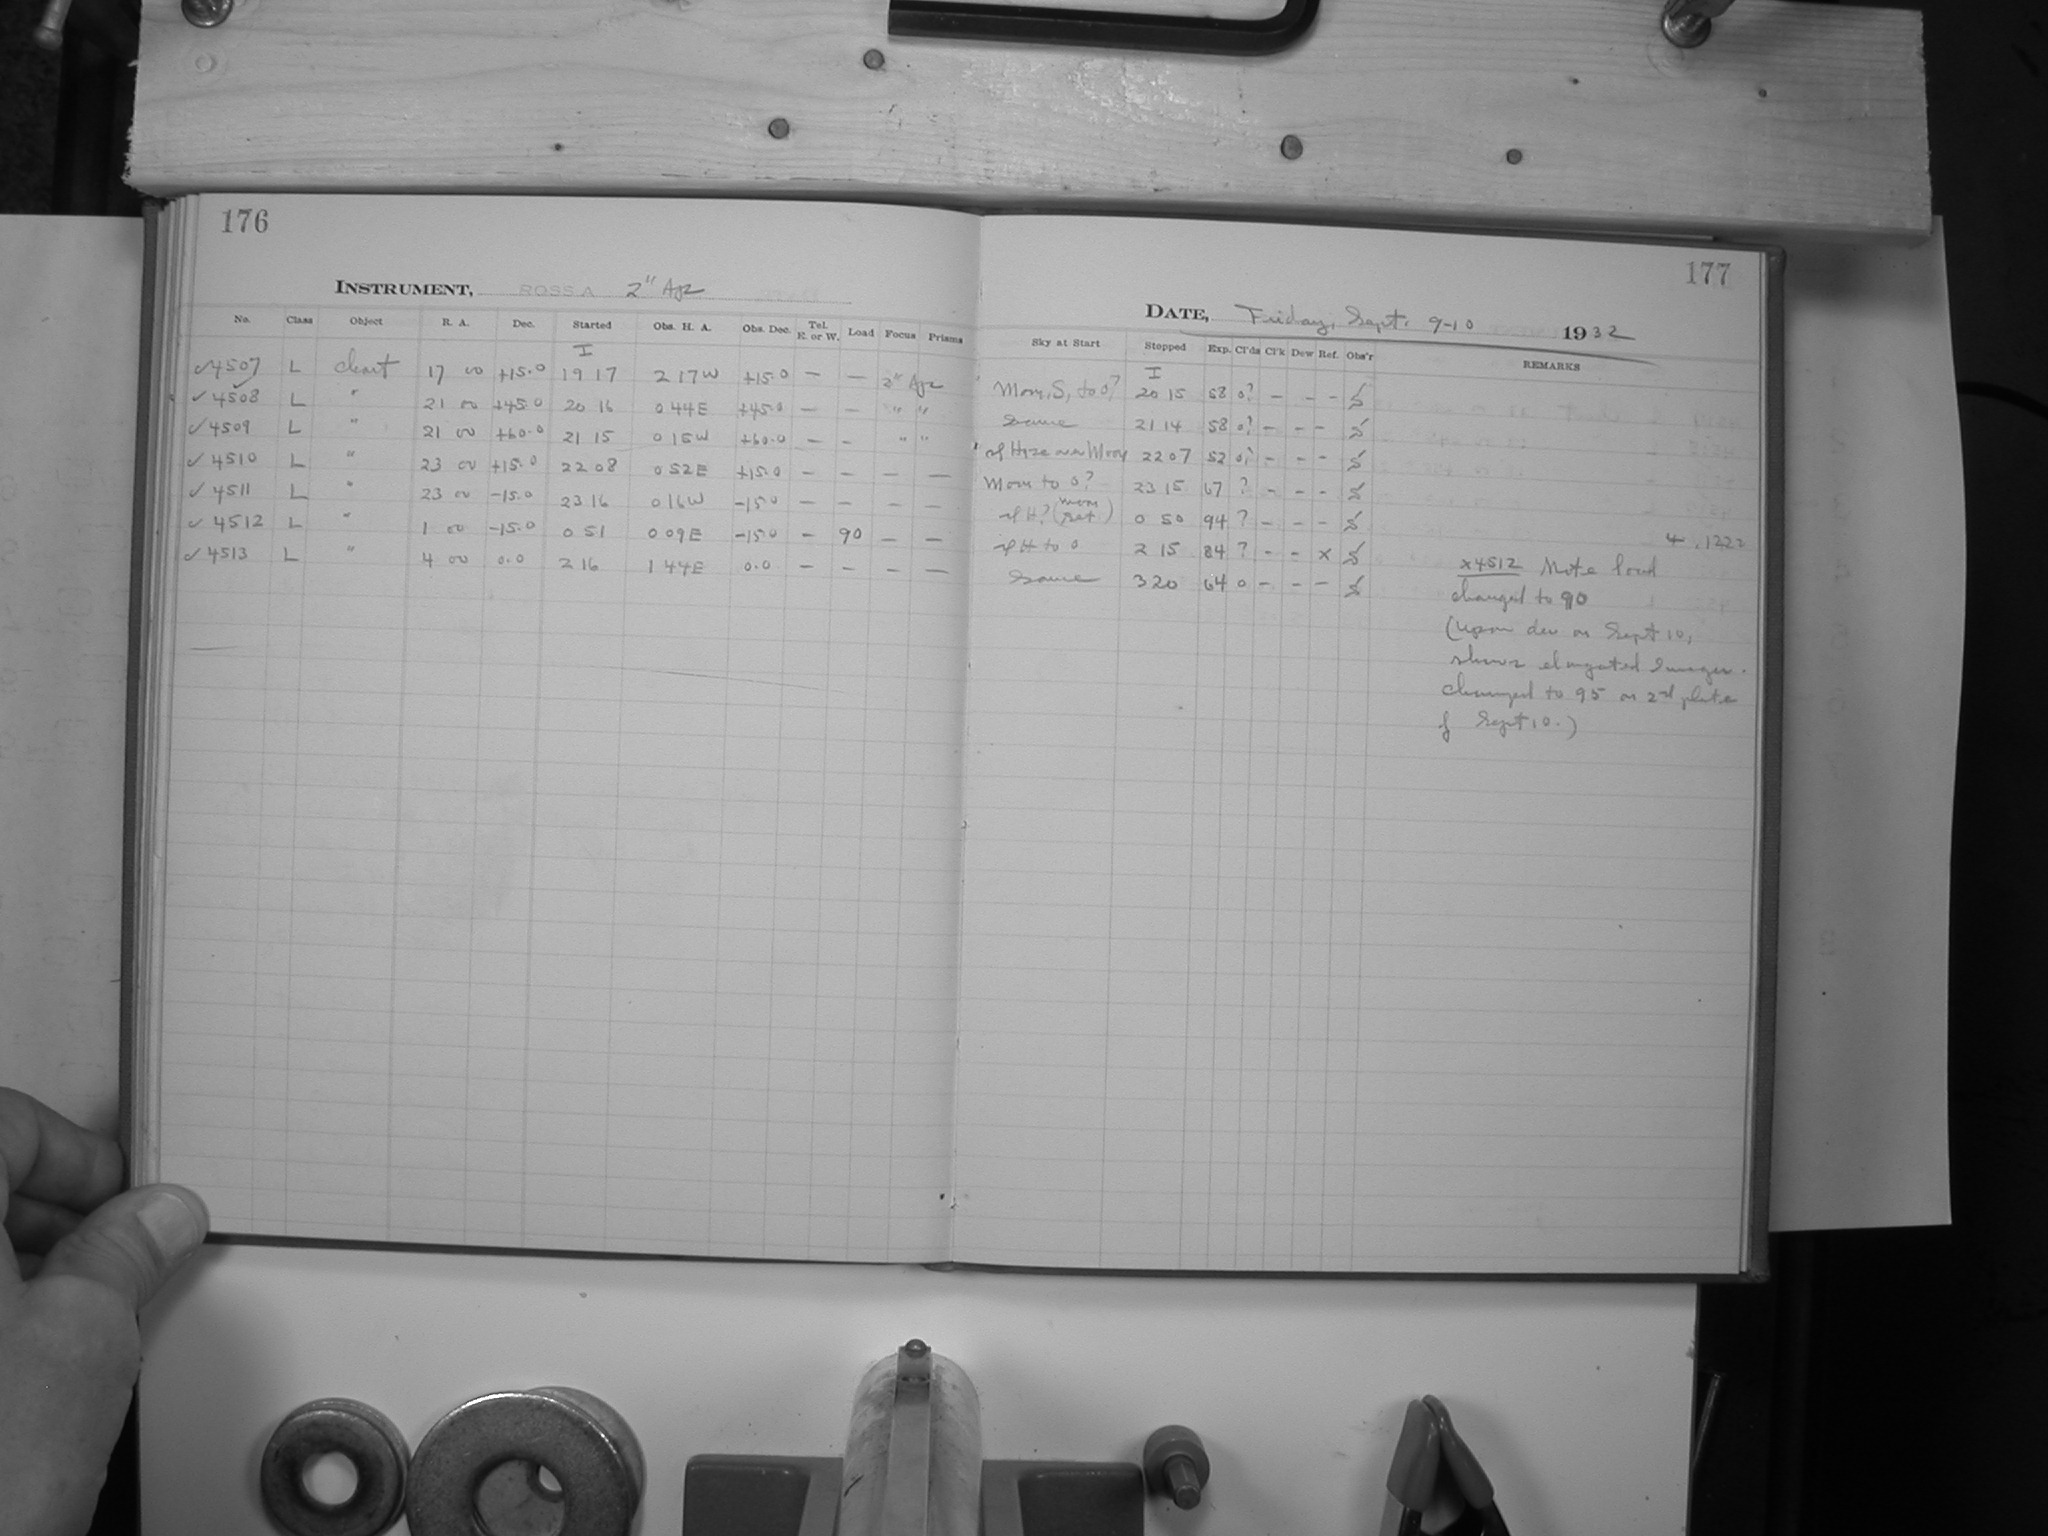 176
INSTRUMENT, ROSS A 2" Apr
No. Class Object R. A. Dec. Started Obs. H. A. Obs. Dec. Tel. E. or W. Load Focus Prisms
I
✓4507 L chart 17 00 +15.0 19 17 2 17W +15.0 — — 2" Apr
✓4508 L " 21 00 +45.0 20 16 0 44E +45.0 — — " "
✓4509 L " 21 00 +60.0 21 15 0 15W +60.0 — — " "
✓4510 L " 23 00 +15.0 22 08 0 52E +15.0 — — — —
✓4511 L " 23 00 -15.0 23 16 0 16W -15.0 — — — —
✓4512 L " 1 00 -15.0 0 51 0 09E -15.0 — 90 — —
✓4513 L " 4 00 0.0 2 16 1 44E 0.0 — — — —
177
DATE, Friday, Sept. 9-10 1932
Sky at Start Stopped Exp. Cl'ds Cl'k Dew Ref. Obs'r REMARKS
I
Moon, S, to 0? 20 15 58 0? — — —
Same 21 14 58 0? — — —
Haze over Moon 22 07 52 0? — — —
Moon to 0? 23 15 67 ? — — —
H? (moon set) 0 50 94 ? — — —
H to 0 2 15 84 ? — — x
Same 3 20 64 0 — — —
.1222
x4512 Note load
changed to 90
(Upon dev on Sept 10,
shows elongated images.
changed to 95 on 2nd plate
of Sept 10.)